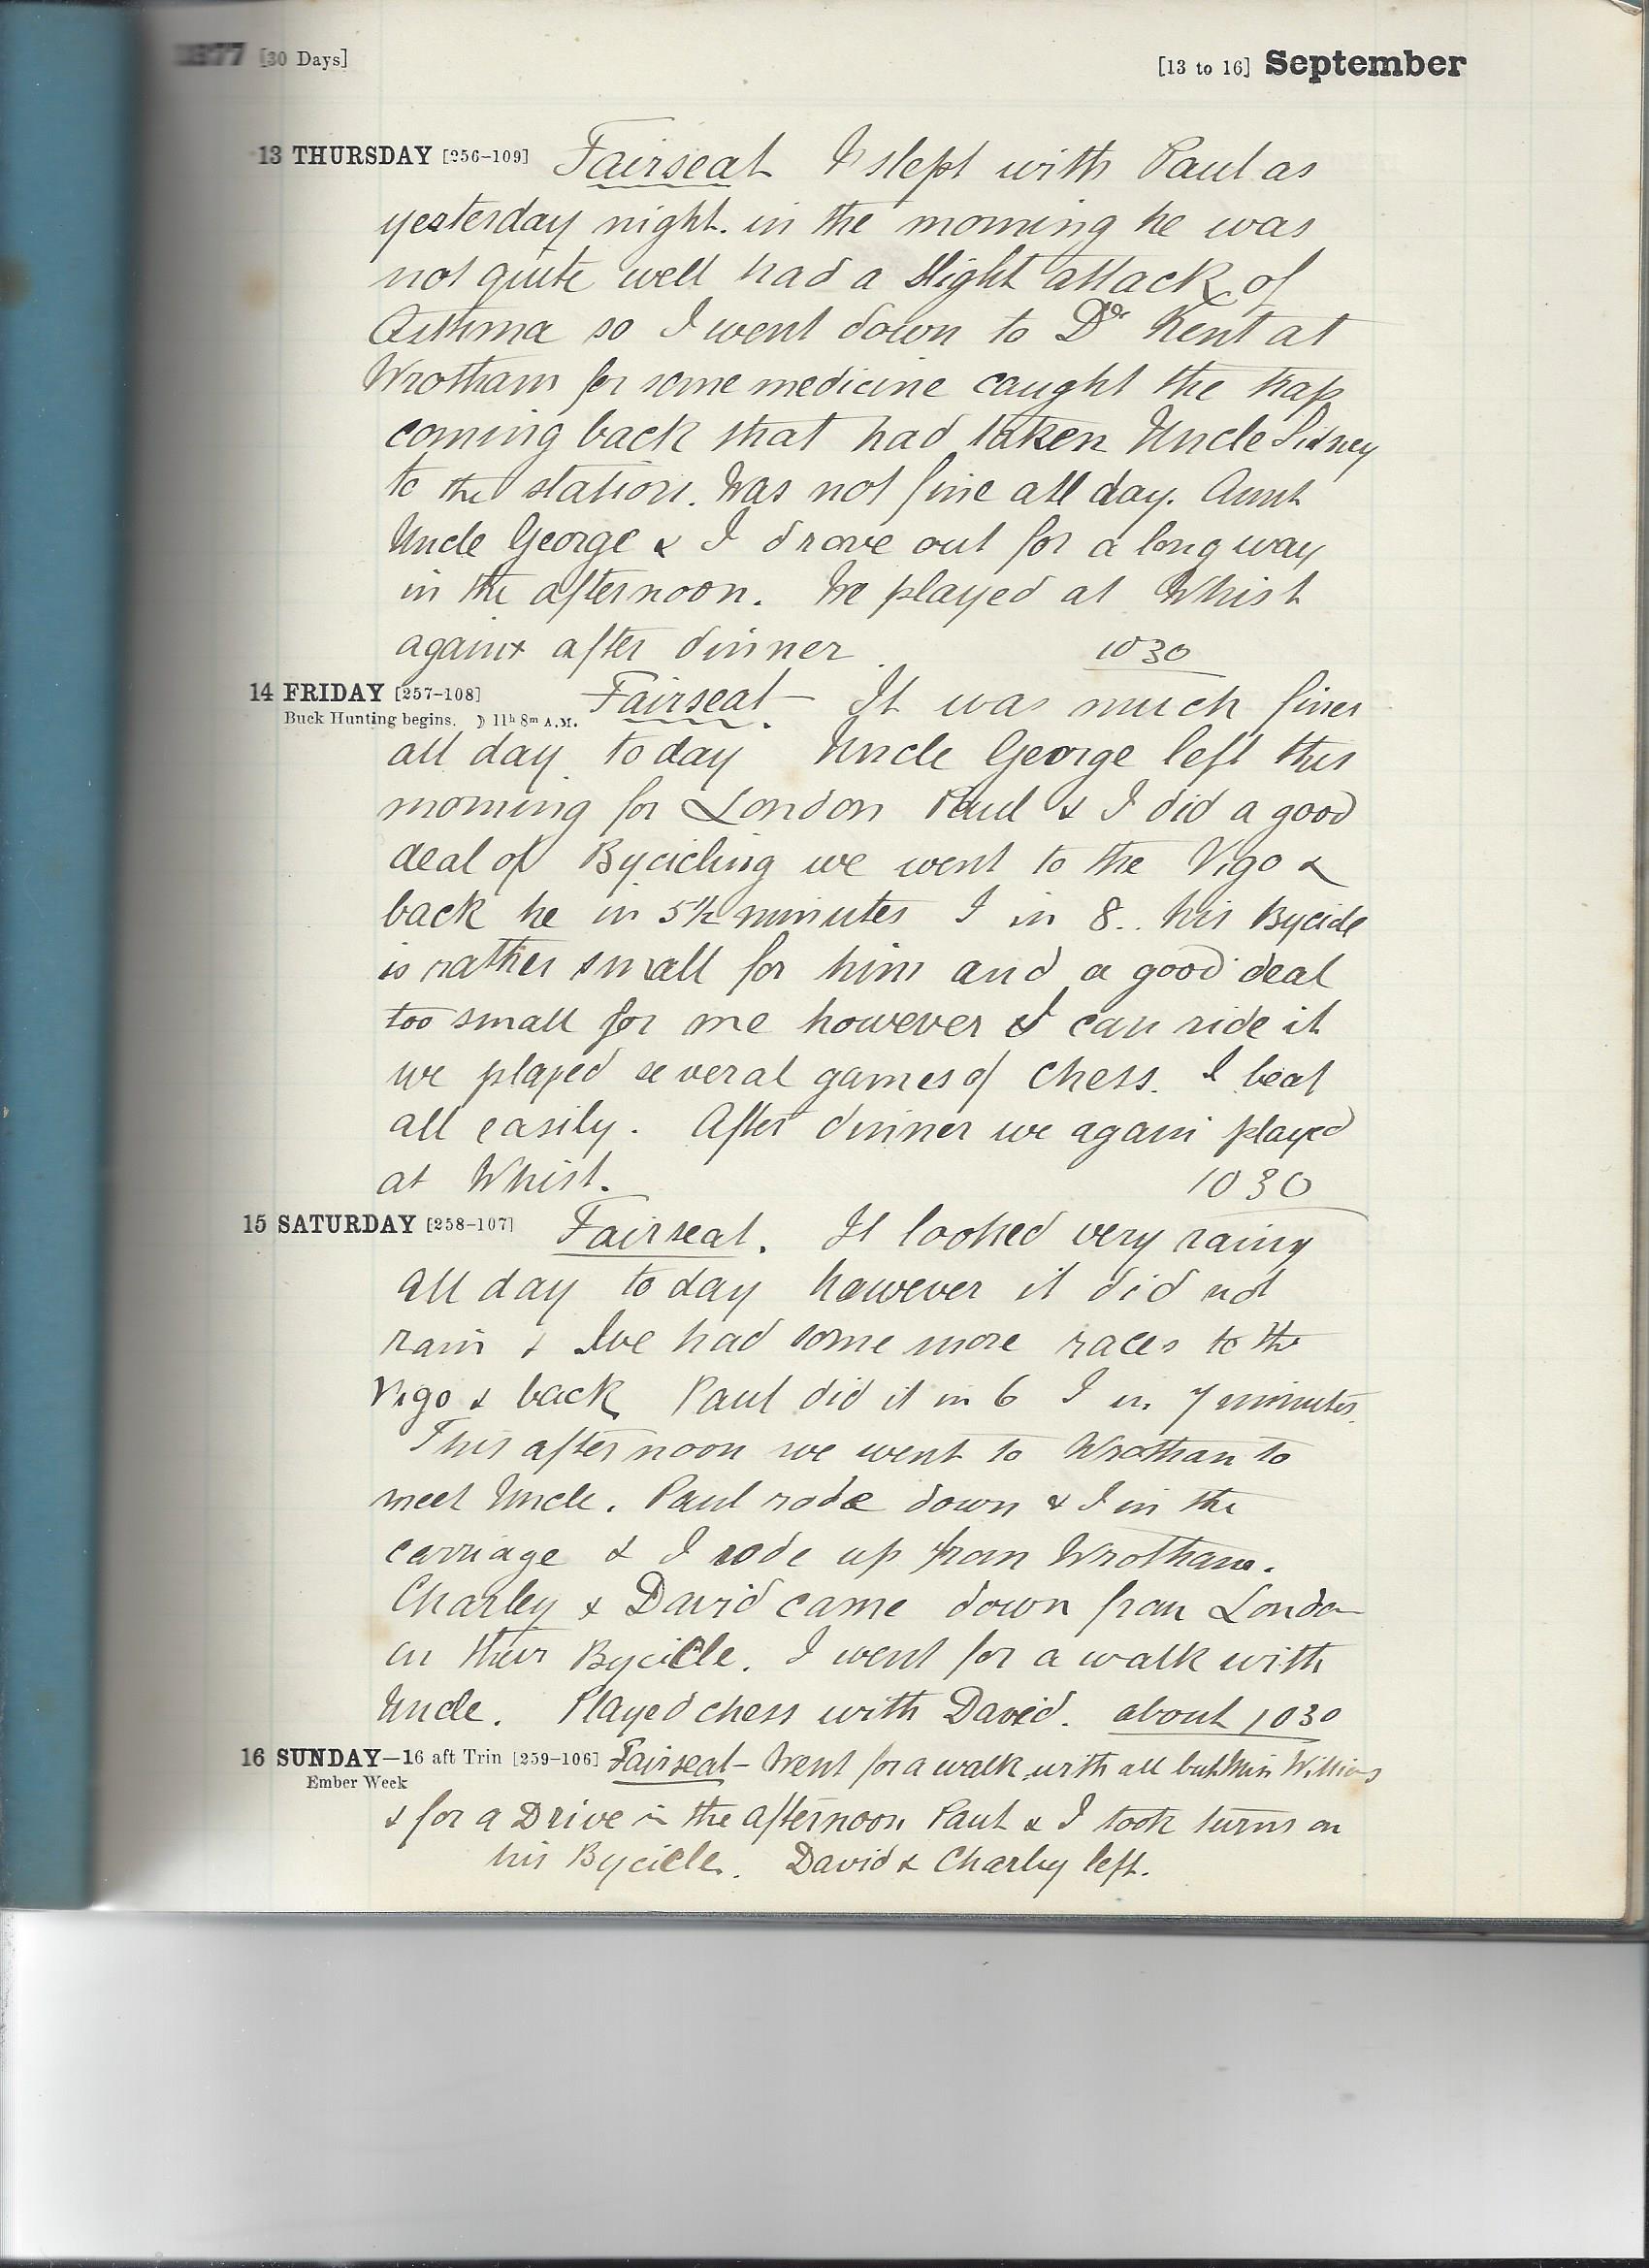 1877 [30 Days] [13 to 16] September
13 THURSDAY [256-109] Fairseat I slept with Paul as
yesterday night. in the morning he was
not quite well had a slight attack of
Asthma so I went down to Dr Kent at
Wrotham for some medicine caught the trap
coming back that had taken Uncle Sidney
to the station. Was not fine all day. Aunt
Uncle George & I drove out for a long way
in the afternoon. We played at Whist
again after dinner. 1030
14 FRIDAY [257-108] Fairseat. It was much finer
Buck Hunting begins. ☽ 11h 8m A.M.
all day today Uncle George left this
morning for London Paul & I did a good
deal of Bycicling we went to the Vigo &
back he in 5½ minutes I in 8.. his Bycicle
is rather small for him and a good deal
too small for me however I can ride it
we played several games of chess. I beat
all easily. After dinner we again played
at Whist. 1030
15 SATURDAY [258-107] Fairseat. It looked very rainy
all day today however it did not
rain & we had some more races to the
Vigo & back Paul did it in 6 I in 7 minutes.
This afternoon we went to Wrotham to
meet Uncle. Paul rode down & I in the
carriage & I rode up from Wrotham.
Charley & David came down from London
on their Bycicle. I went for a walk with
Uncle. Played chess with David. about 1030
16 SUNDAY—16 aft Trin [259-106] Fairseat - Went for a walk with all but Miss Williams
Ember Week
& for a Drive in the afternoon Paul & I took turns on
his Bycicle. David & Charley left.